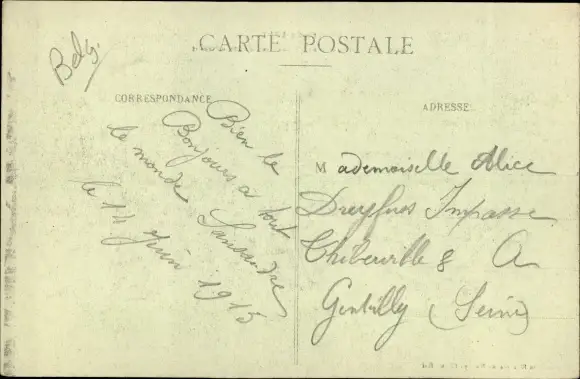 Belg.
CARTE POSTALE
CORRESPONDANCE
ADRESSE
Bien le
Bonjours a tout
le monde
le 14 Juin 1915
Mademoiselle Alice
Dreyfues Impasse
8 A
Gentilly (Seine)